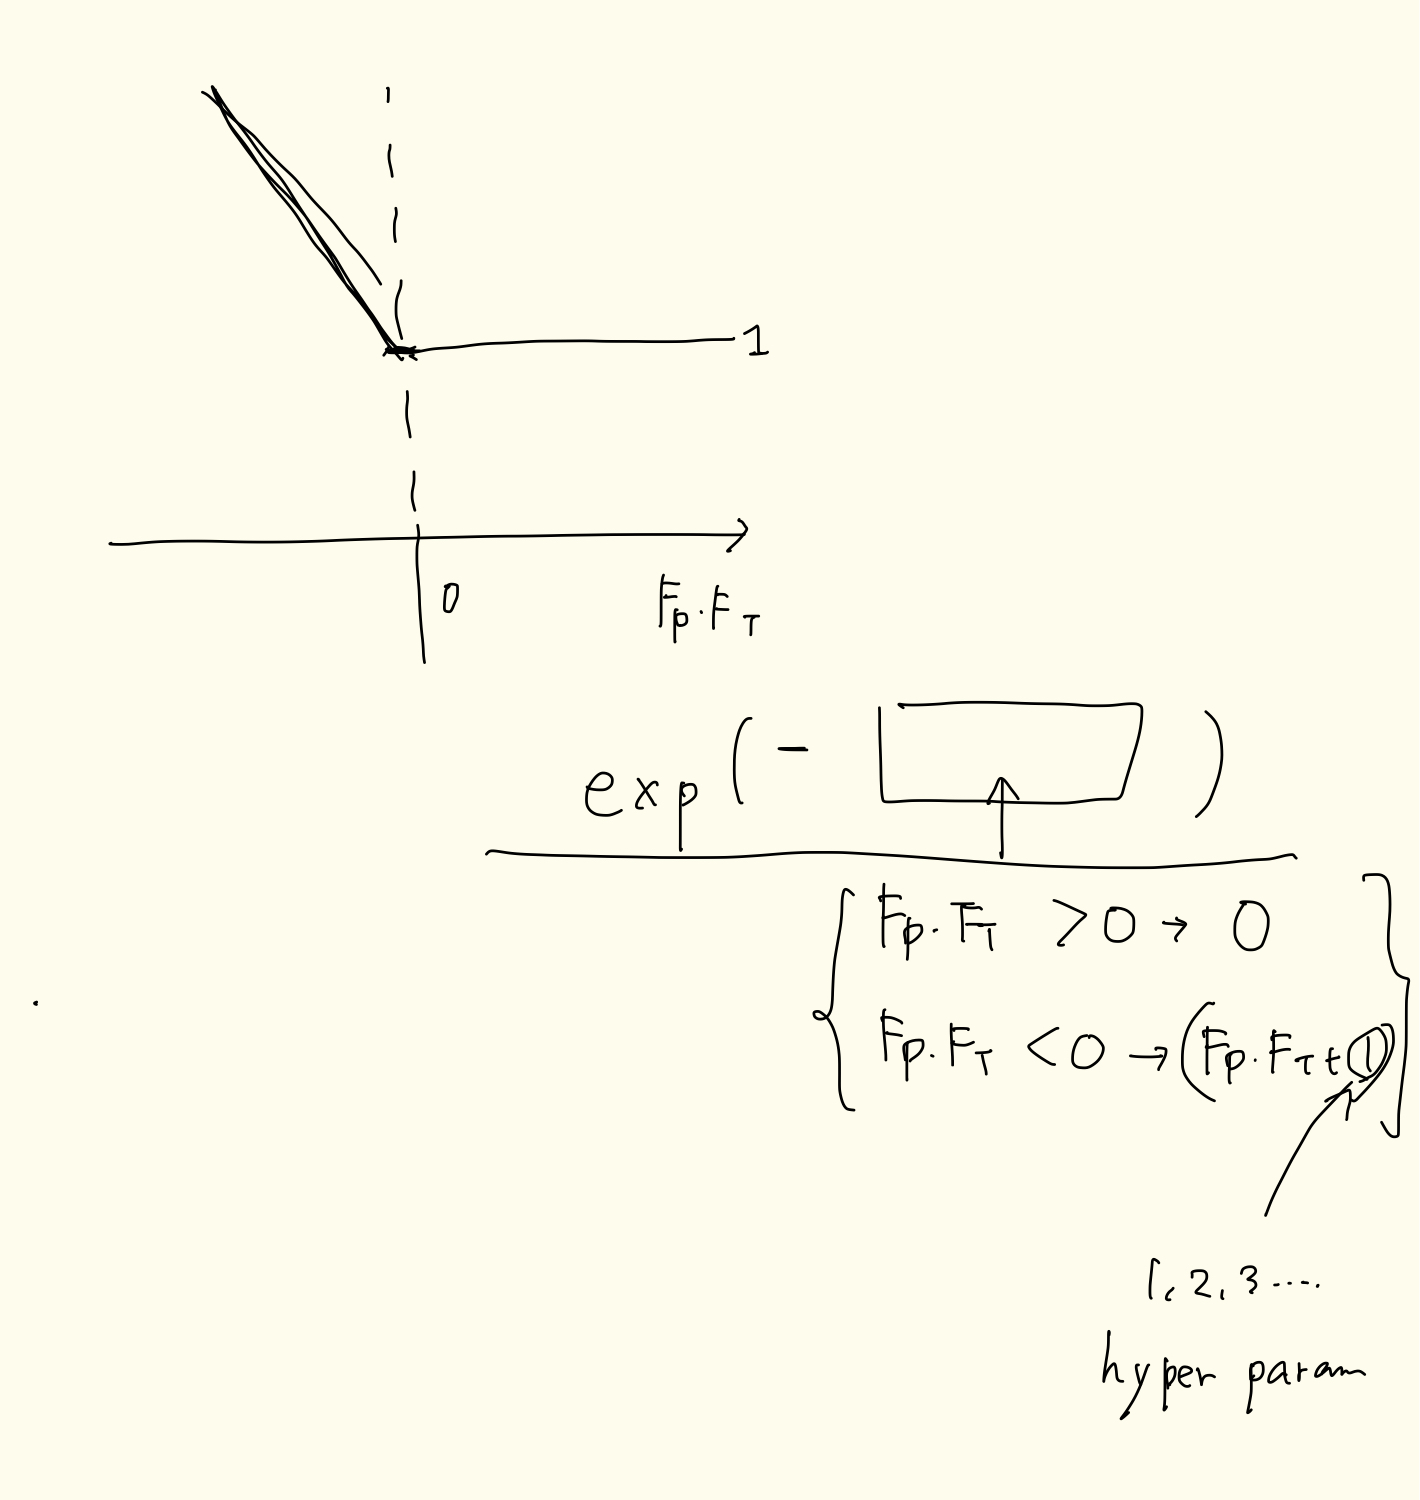 1
0
Fp・FT
exp(- )
Fp・FT >0 → 0
Fp・FT <0 → (Fp・FT+①)
1, 2, 3 ....
hyper param